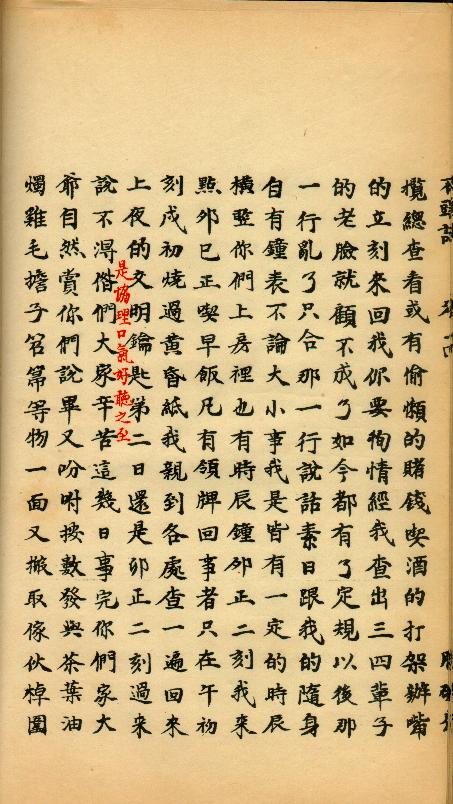 攬總查看或有偷懶的賭錢喫酒的打架辦嘴
的立刻來回我你要徇情經我查出三四輩子
的老臉就顧不成了如今都有了定規以後那
一行亂了只合那一行說話素日跟我的隨身
自有鐘表不論大小事我是皆有一定的時辰
橫豎你們上房裡也有時辰鐘卯正二刻我來
點卯巳正喫早飯凡有領牌回事者只在午初
刻戌初燒過黃昏紙我親到各處查一遍回來
上夜的交明鑰匙第二日還是卯正二刻過來
說不得偺們大家辛苦這幾日事完你們家大
是協理口氣好聽之至
爺自然賞你們說畢又吩咐按數發與茶葉油
燭雞毛擔子笤箒等物一面又搬取傢伙棹圍